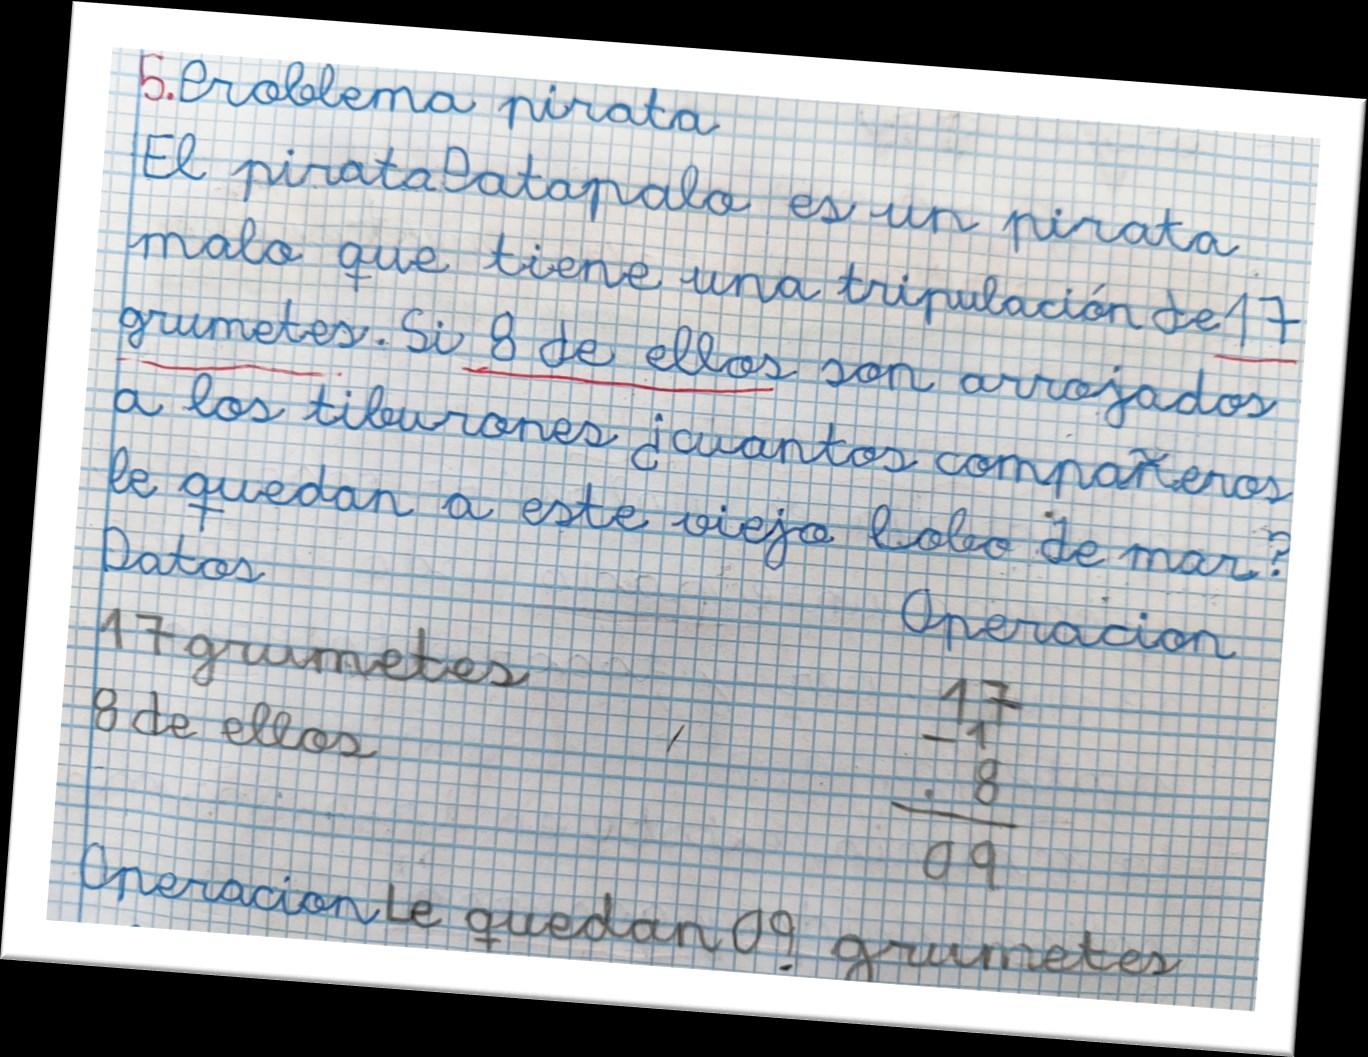 5. Problema pirata
El pirata Patapalo es un pirata
malo que tiene una tripulación de 17
grumetes. Si 8 de ellos son arrojados
a los tiburones ¿cuantos compañeros
le quedan a este viejo lobo de mar?
Datos
Operacion
17 grumetes
8 de ellos
17
- 1
8
09
Operacion Le quedan 09 grumetes